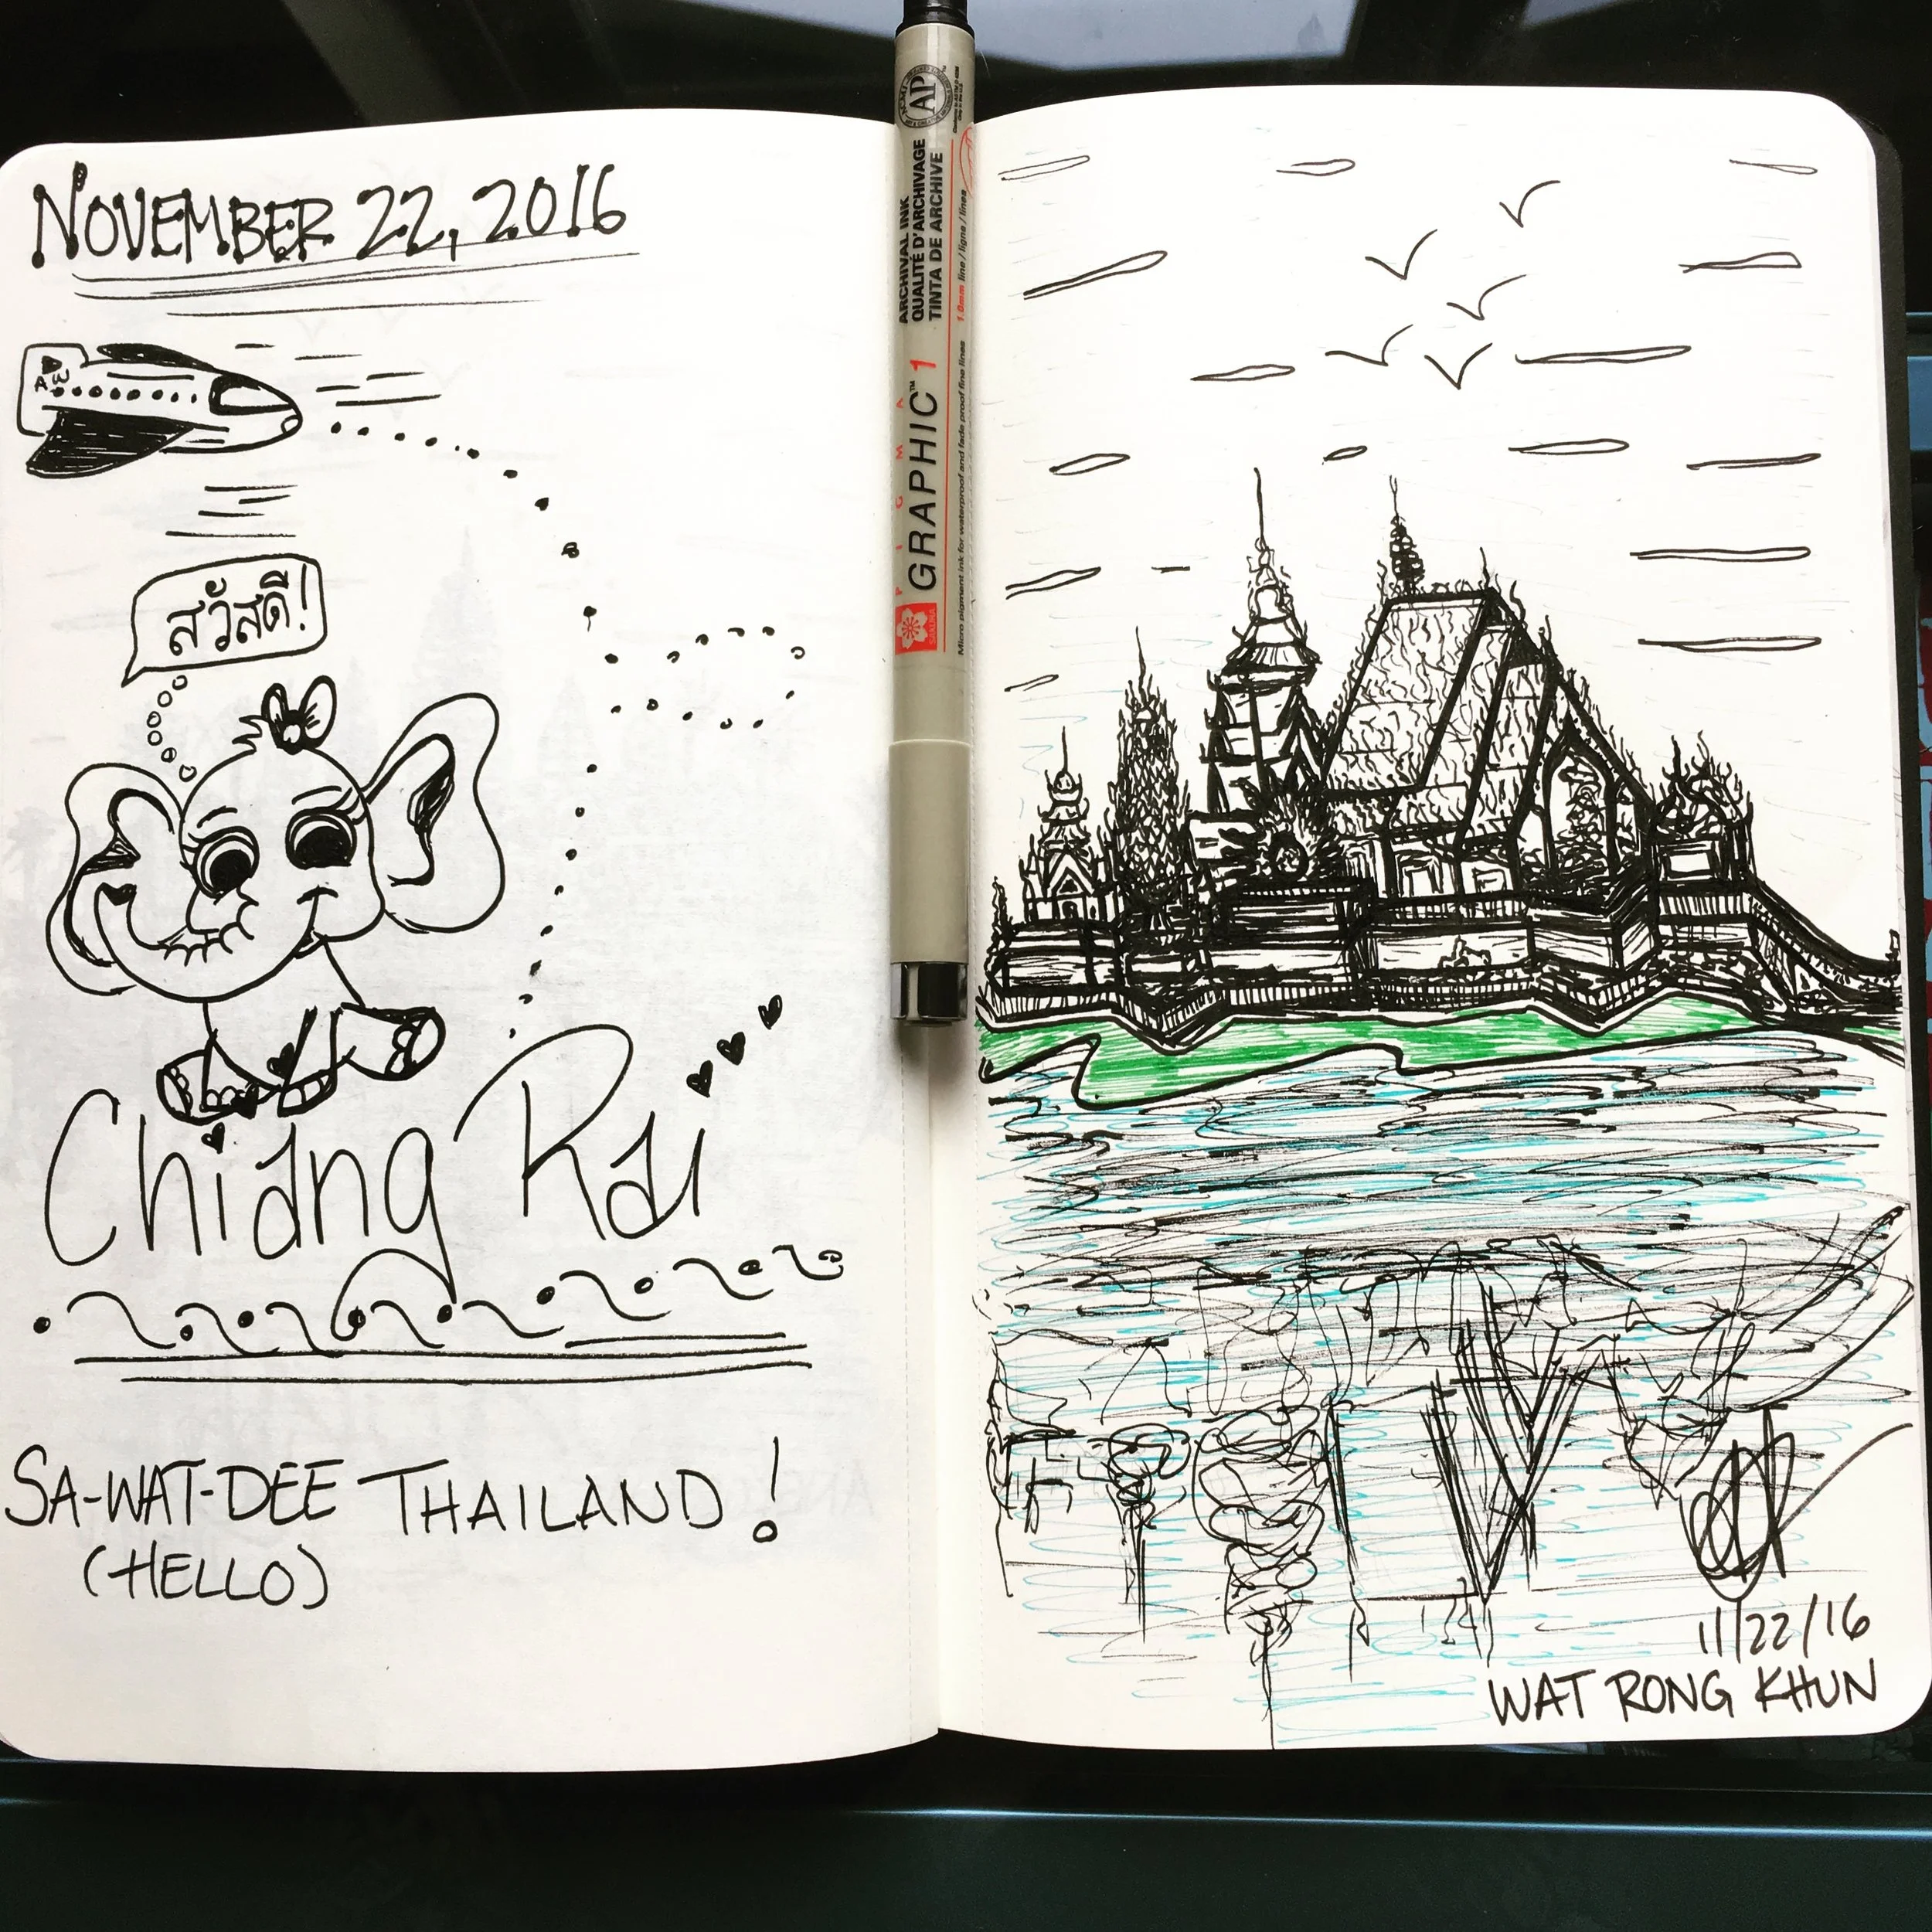 NOVEMBER 22, 2016
สวัสดี!
Chiang Rai
SA-WAT-DEE THAILAND!
(HELLO)
AP
ARCHIVAL INK
QUALITÉ D'ARCHIVAGE
TINTA DE ARCHIVE
1.0mm line / ligne / lines
PIGMA
GRAPHIC™ 1
Micro pigment ink for waterproof and fade proof fine lines
SAKURA
11/22/16
WAT RONG KHUN